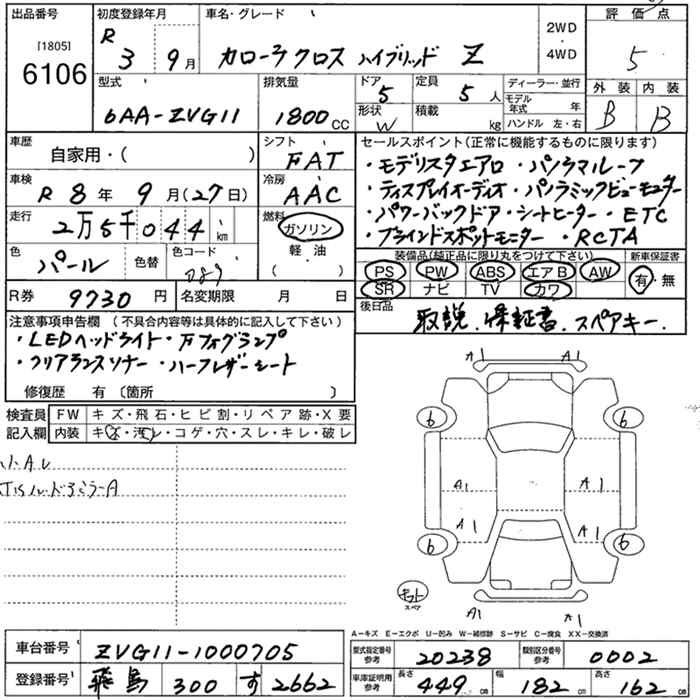 出品番号 初度登録年月 車名・グレード 評価点
[1805]
6106
R 3 9月 カローラクロス ハイブリッド Z
2WD
・
4WD
5
型式 排気量 ドア 定員 ディーラー・並行 外装 内装
6AA-ZVG11 1800cc 5 5人
モデル年式 年
形状 W 積載 kg ハンドル 左・右
B B
車歴 自家用・( )
シフト FAT
セールスポイント(正常に機能するものに限ります)
・モデリスタエアロ ・パノラマルーフ
・ディスプレイオーディオ・パノラミックビューモニター
・パワーバックドア・シートヒーター・ETC
・ブラインドスポットモニター・RCTA
車検 R8年 9月(27日)
冷房 AAC
走行 2万5千044km
燃料 ガソリン
軽油
( )
色 パール 色替 色コード 089
装備品(純正品に限り丸をつけて下さい) 新車保証書
PS PW ABS エアB AW
SR ナビ TV カワ
有・無
R券 9730円 名変期限 月 日
後日品 取説.保証書.スペアキー.
注意事項申告欄(不具合内容等は具体的に記入して下さい)
・LEDヘッドライト・〃フォグランプ
・クリアランスソナー・ハーフレザーシート
修復歴 有(箇所 )
検査員記入欄
FW キズ・飛石・ヒビ割・リペア跡・X要
内装 キズ・汚レ・コゲ・穴・スレ・キレ・破レ
A1 A1
6 6
A1 A1
A1 A1
6 6
スペア
A1 A1
A-キズ E-エクボ U-凹み W-補修跡 S-サビ C-腐食 XX-交換済
車台番号 ZVG11-1000705
型式指定番号参考 20238 類別区分番号参考 0002
登録番号 飛鳥 300 す 2662
車庫証明用参考 長さ 449cm 幅 182cm 高さ 162cm